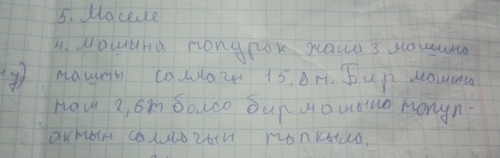 5. Маселе
4. машина топурак жана 3 машина
у) ташты салмагы 15,8 т. Бир машина
таш 2,6т болсо бир машина топур-
актын салмагын тапкыла.